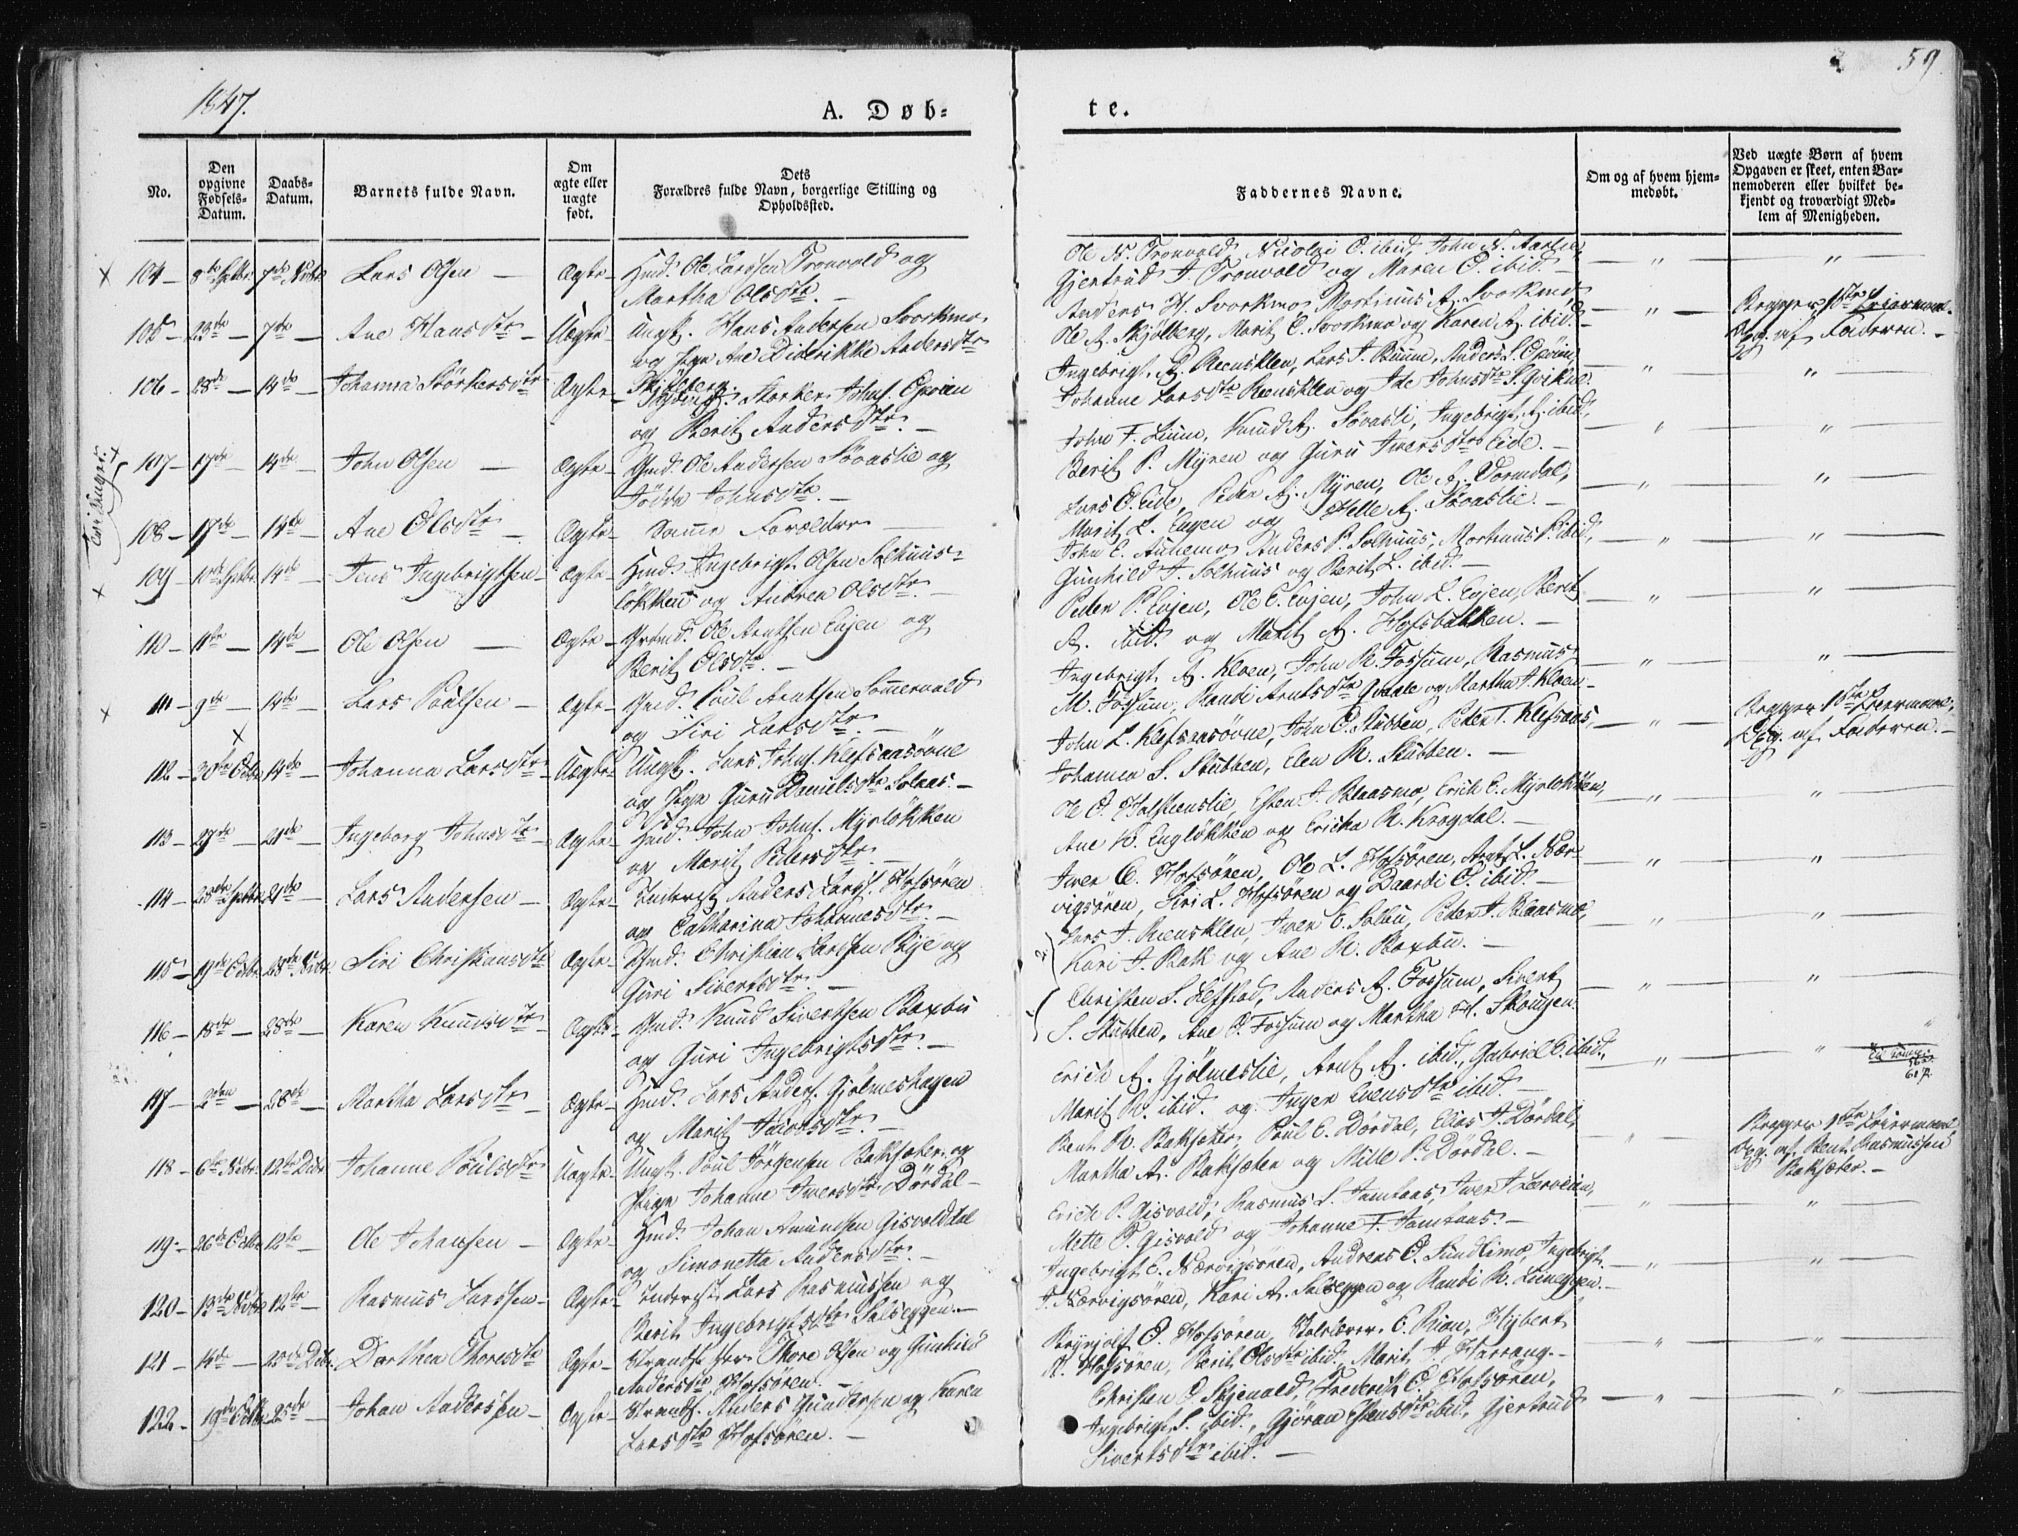 1847.
59
A. Døb=
te.
No.
Den opgivne Fødsels-Datum.
Daabs-Datum.
Barnets fulde Navn.
Om ægte eller uægte født.
Dets Forældres fulde Navn, borgerlige Stilling og Opholdssted.
Faddernes Navne.
Om og af hvem hjemmedøbt.
Ved uægte Børn af hvem Opgaven er skeet, enten Barnemoderen eller hvilket bekjendt og troværdigt Medlem af Menigheden.
104 - 8de Septbr 7de Novbr Lars Olsen - Ægte - Hmd. Ole Larssen Tronvold og
Martha Olsdtr. -
Ole N. Tronvold, Nicolai O. ibid, John N. Aarlie,
Gjertrud J. Tronvold og Maren O. ibid. -
105 - 23de - 7de - Ane Hansdtr - Uægte - Ungk. Hans Andersen Svorkmo
og Pige Ane Diderikke Andersdtr
Skjølberg.
Anders H. Svorkmo, Martinus A. Svorkmo
Ole A. Skjølberg, Marit E. Svorkmo og Karen A. ibid. -
Begges 1ste Leiermaal.
Opg. af Faderen. -
106 - 28de - 14de - Johanna Størkersdtr Ægte - Størker Johns. Opøien
og Berit Andersdtr. -
Ingebrigt A. Reensklev, Lars J. Buum, Anders S. Opøien,
Johanne Larsdtr Reensklev og Ide Johnsdtr S. Gvikne.
107 - 17de - 14de - John Olsen - Ægte - Gmd. Ole Andersen Søvaslie og
Jødde Johnsdtr. -
John F. Lium, Knud A. Søvasli, Ingebrigt A. ibid,
Berit P. Myren og Guru Iversdtr Eide. -
108 - 17de - 14de - Ane Olsdtr - Ægte - Samme Forældre -
Lars O. Eide, Peder A. Myren, Ole A. Dormdal,
Marit L. Eugen og Helle A. Søvaslie. -
109 - 10de Septbr 14de Jens Ingebrigtsen - Ægte - Hmd. Ingebrigt Olsen Solhuus-
løkken og Andrea Olsdtr. -
John E. Aunemo, Anders P. Solhuus, Morthinus P. ibid,
Gunhild J. Solhuus og Berit L. ibid. -
110 - 11te - 14de - Ole Olsen - Ægte - Grdmd. Ole Arntsen Evjen og
Berit Olsdtr. -
Peder P. Evjen, Ole E. Evjen, John L. Evjen, Berit
A. ibid. og Marit A. Hofsbakken. -
111 - 9de - 14de - Lars Poulsen - Ægte - Gmd. Poul Arntsen Sommervold
og Siri Larsdtr. -
Ingebrigt A. Kleven, John R. Fossum, Rasmus
M. Fossum, Randi Arntsdtr Gvaale og Martha J. Kleven -
112 - 30te Octbr 14de - Johanna Larsdtr - Uægte - Ungk. Lars Johns. Klefsaasøvne
og Pige Guru Danielsdtr Solaas. -
John L. Klefsaasøvne, John O. Stubben, Peder T. Klefsaas,
Johanna S. Stubben, Elen R. Stubben. -
Begges 1ste Leiermaal,
Opg. af Faderen. -
113 - 27de - 21de - Ingeborg Johnsdtr - Ægte - Hmd. John Johns. Myrløkken
og Marit Pedersdtr. -
Ole O. Holsteenslie, Esten J. Blaasmo, Erich E. Myrløkken,
Ane K. Engløkken og Ericka R. Krogdal. -
114 - 28de Septbr 21de - Lars Andersen - Ægte - Inderst Anders Larss. Hofsøren
og Catharina Johannesdtr. -
Iver E. Hofsøren, Ole L. Hofsøren, Arnt L. Nær-
vigsøren, Siri L. Hofsøren og Baardi O. ibid. -
115 - 19de Octbr 28de Novbr Siri Christiansdtr Ægte - Gmd. Christian Larssen Bye og
Guri Sivertsdtr. -
Lars J. Reensklev, Iver E. Solbu, Peder J. Blaasmo,
Kari J. Bak og Ane R. Boxbu. -
116 - 18de - 28de - Karen Knudsdtr - Ægte - Gmd. Knud Sivertsen Boxbu
og Guri Ingebrigtsdtr. -
Christen S. Lefstad, Anders A. Fossum, Sivert
S. Stubben, Ane O. Fossum og Martha H. Skougen.
117 - 2den - 28de - Martha Larsdtr - Ægte - Hmd. Lars Anders. Gjølmeshagen
og Marit Iversdtr. -
Erich A. Gjølmeslie, Arnt A. ibid., Gabriel E. ibid.,
Marit R. ibid. og Inger Evensdtr ibid. -
118 - 6te Novbr 12te Decbr Johanne Poulsdtr Uægte - Ungk. Poul Jørgensen Bakseter og
Pige Johanne Iversdtr Dørdal -
Bent R. Bakseter, Poul E. Dørdal, Elias J. Dørdal,
Martha A. Bakseter og Mille P. Dørdal. -
Begges 1ste Leiermaal,
Opg. af Bent Rasmussen
Bakseter. -
119 - 26de Octbr 12te - Ole Johansen - Ægte - Hmd. Johan Amundsen Gisvolddal
og Simonetta Andersdtr. -
Erich P. Gisvold, Rasmus S. Jamtaas, Iver J. Larveien,
Mette P. Gisvold og Johanne T. Jamtaas. -
120 - 13de Novbr 12te - Rasmus Larssen - Ægte - Inderst Lars Rasmussen og
Berit Ingebrigtsdtr Solseggen. -
Ingebrigt E. Nærvigsøren, Andreas O. Sundlimo, Ingebrigt
J. Nærvigsøren, Kari A. Solseggen og Randi R. Liineggen. -
121 - 14de - 25de Decbr. Dorthea Thoresdtr Ægte - Thore Olsen og Gunhild
Andersdtr Hofsøren. -
Brynjolf O. Hofsøren, Halvor E. Rian, Hybert
R. Hofsøren, Berit Olsdtr ibid, Marit J. Harrang. -
122 - 19de Octbr 25de - Johan Anderssen - Ægte - Strands. Anders Gundersen og Karen
Larsdtr Hofsøren. -
Christen O. Skjevald, Frederik O. Hofsøren,
Ingebrigt S. ibid., Gjøran Estensdtr ibid, Gjertrud
Sivertsdtr ibid. -